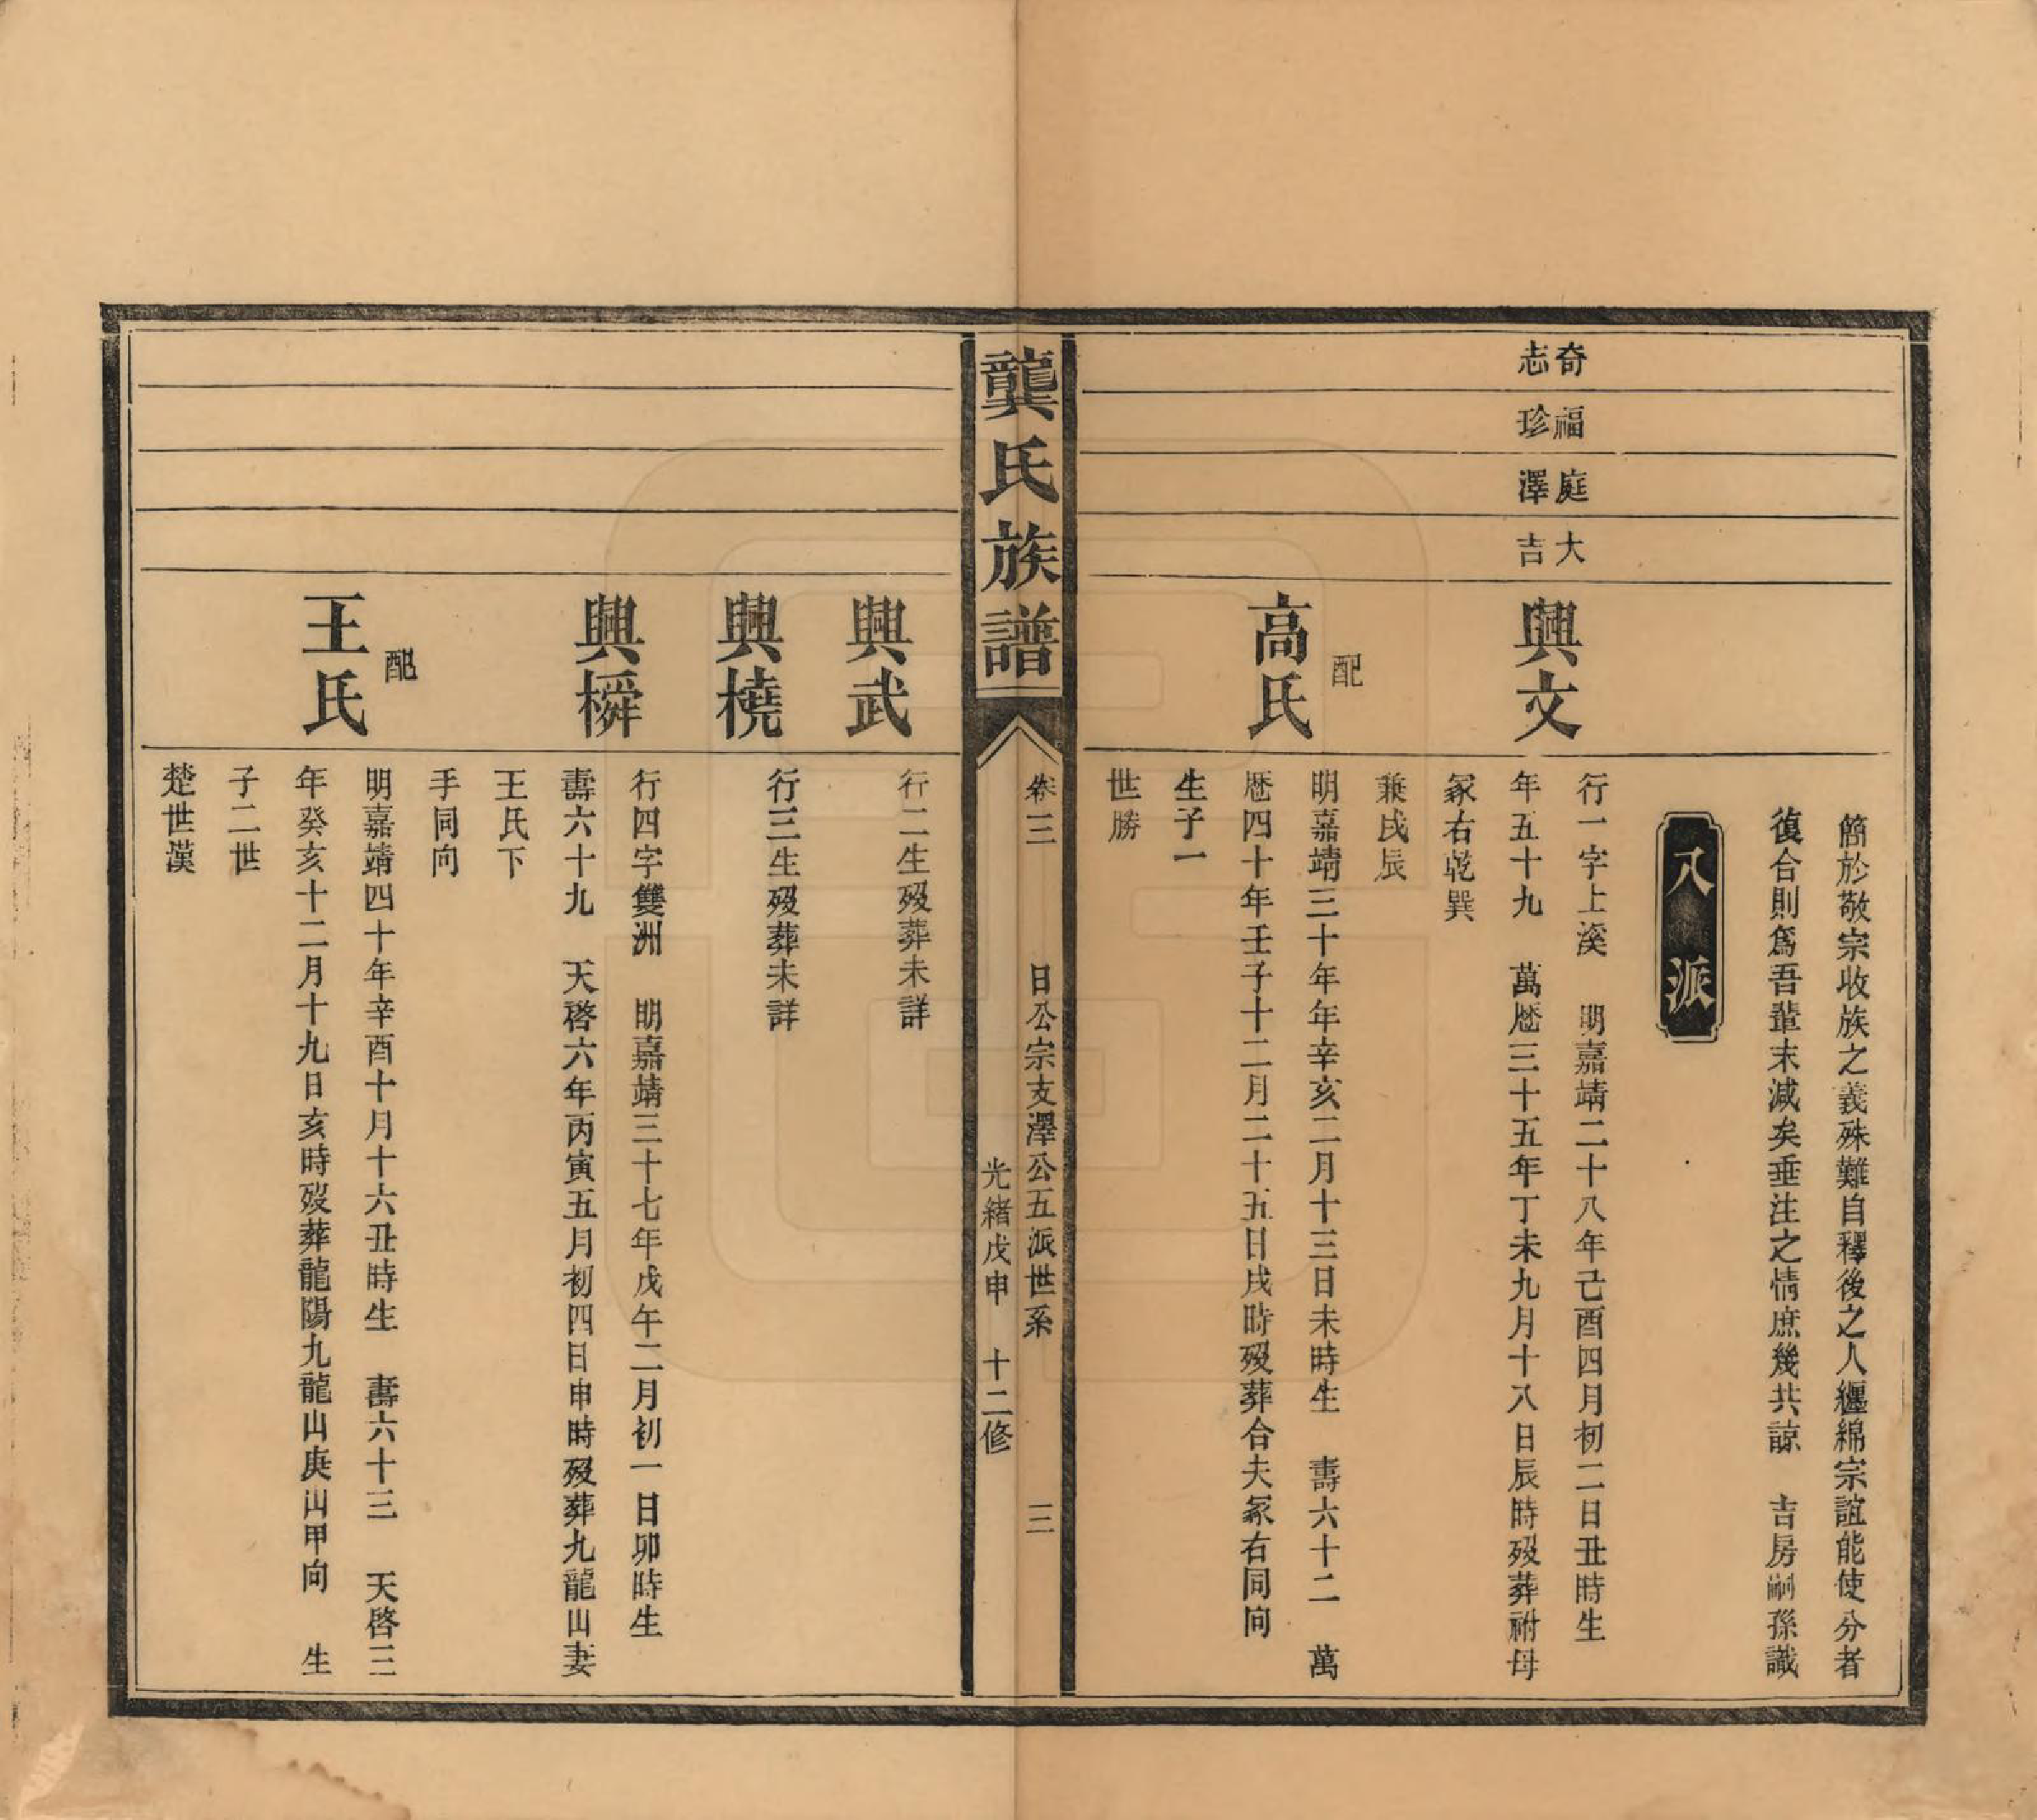 簡於敬宗收族之義殊難自釋後之人纏綿宗誼能使分者
復合則爲吾輩末減矣垂注之情庶幾共諒　吉房嗣孫識
八派
奇志
福珍
庭澤
大吉
興文
行一字上溪　明嘉靖二十八年己酉四月初二日丑時生
年五十九　萬歷三十五年丁未九月十八日辰時歿葬祔母
冢右乾巽
兼戌辰
配
高氏
明嘉靖三十年年辛亥二月十三日未時生　壽六十二　萬
歷四十年壬子十二月二十五日戌時歿葬合夫冢右同向
生子一
世勝
龔氏族譜
卷三　日公宗支澤公五派世系　三
光緒戊申　十二修
興武
行二生歿葬未詳
興橈
行三生歿葬未詳
興橓
行四字雙洲　明嘉靖三十七年戊午二月初一日卯時生
壽六十九　天啓六年丙寅五月初四日申時歿葬九龍山妻
王氏下
手同向
配
王氏
明嘉靖四十年辛酉十月十六丑時生　壽六十三　天啓三
年癸亥十二月十九日亥時歿葬龍陽九龍山庚山甲向　生
子二世
楚世漢